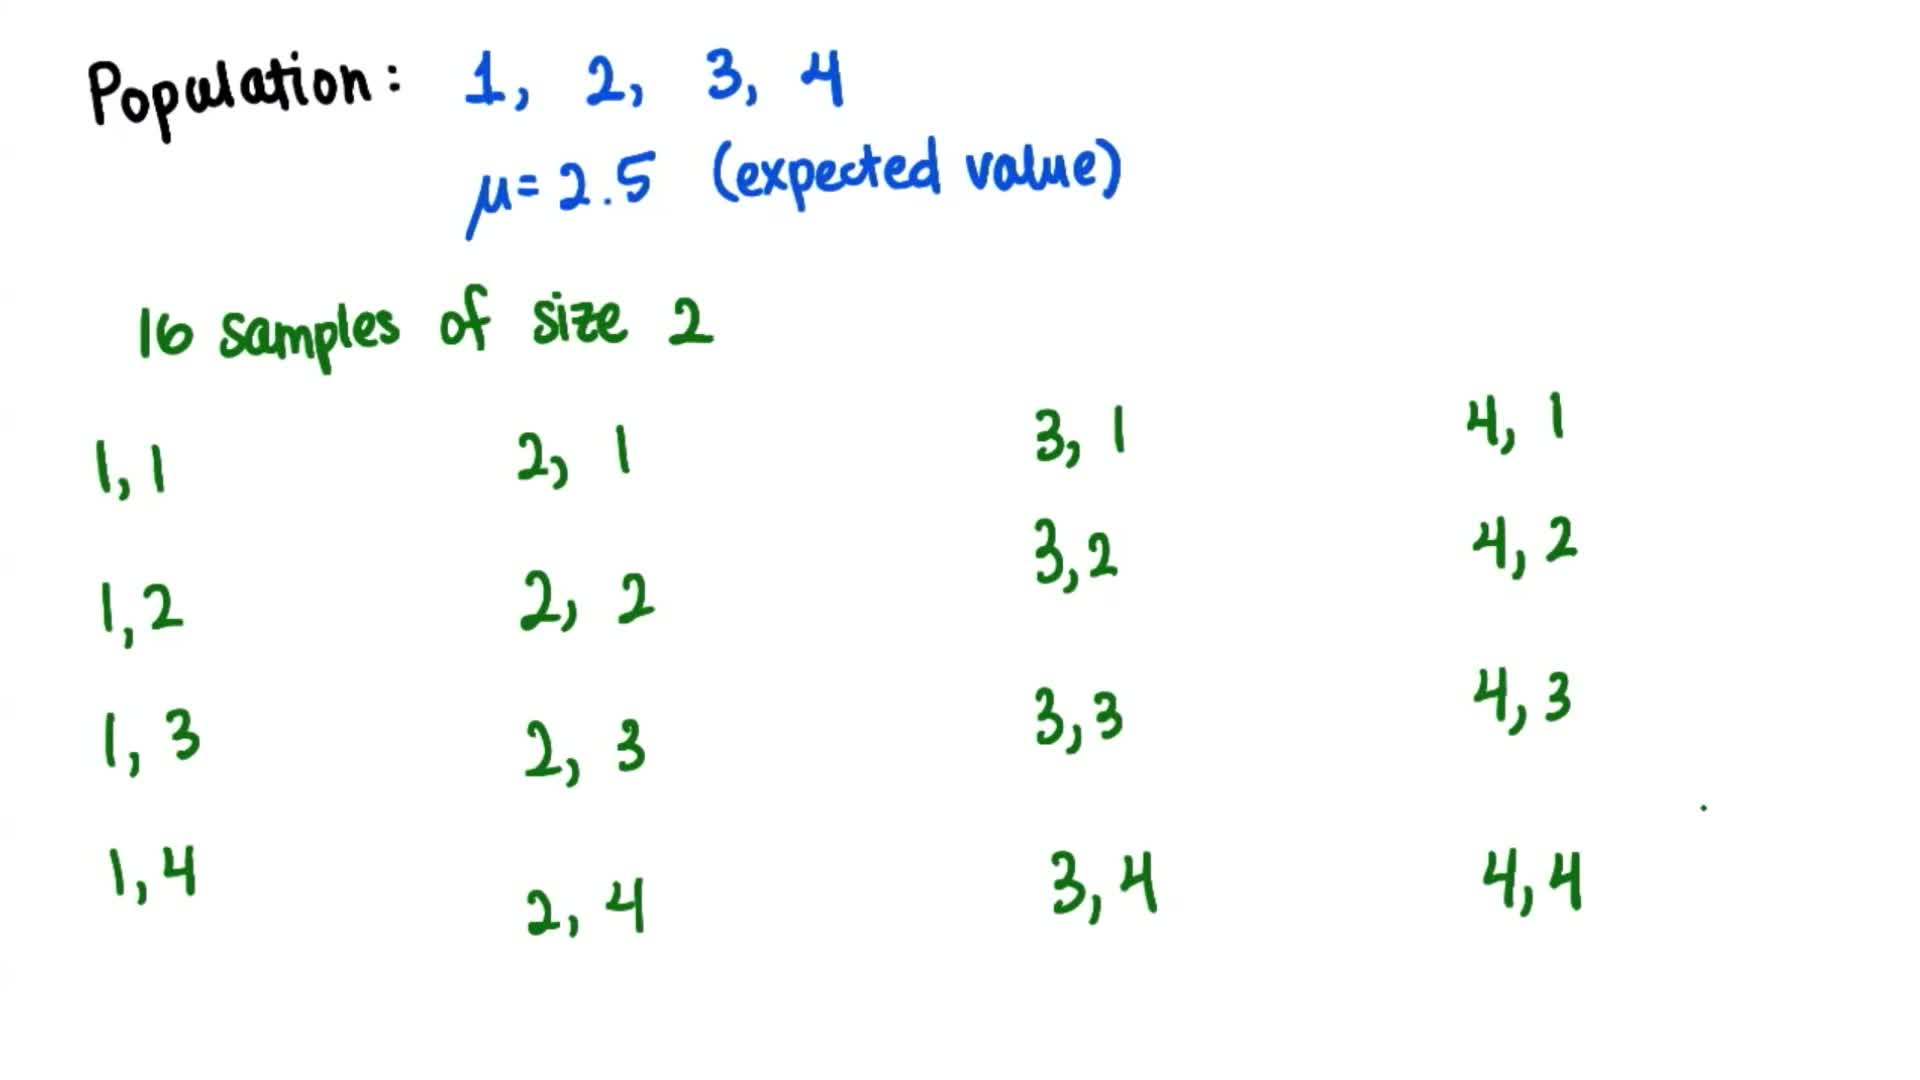 Population: 1, 2, 3, 4
μ=2.5 (expected value)
16 samples of size 2
1,1 2, 1 3, 1 4, 1
1,2 2, 2 3,2 4, 2
1, 3 2, 3 3,3 4,3
1,4 2, 4 3, 4 4,4